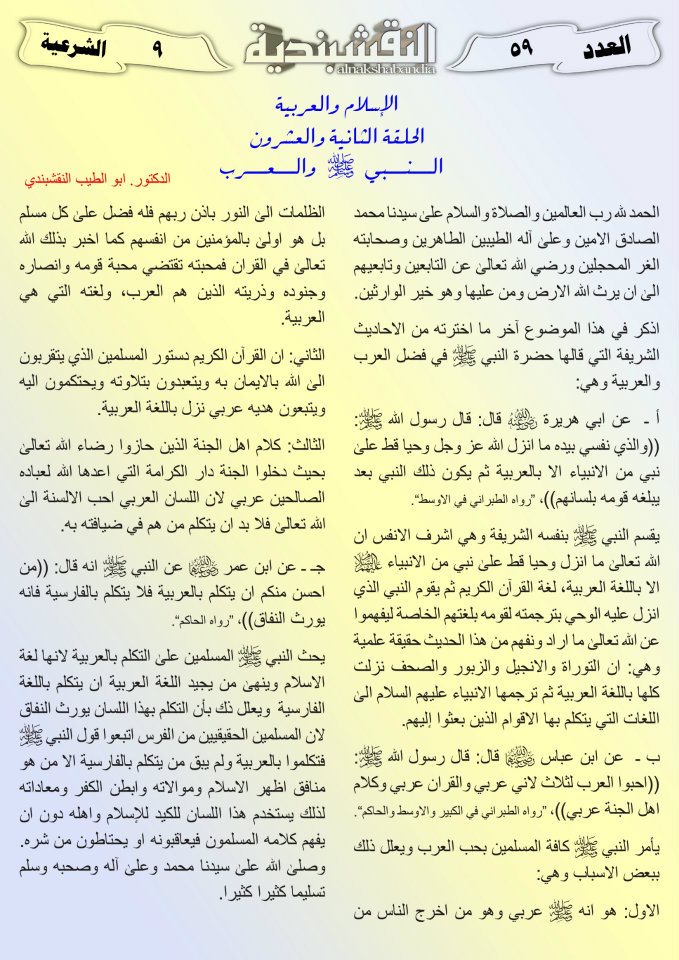 العدد
٥٩
النقشبندية
alnakshabandia
٩
الشرعية
الإسلام والعربية
الحلقة الثانية والعشرون
الـــنـــبي ﷺ والـــعـــرب
الدكتور. ابو الطيب النقشبندي
الحمد لله رب العالمين والصلاة والسلام علىٰ سيدنا محمد
الصادق الامين وعلىٰ آله الطيبين الطاهرين وصحابته
الغر المحجلين ورضي الله تعالىٰ عن التابعين وتابعيهم
الىٰ ان يرث الله الارض ومن عليها وهو خير الوارثين.
اذكر في هذا الموضوع آخر ما اخترته من الاحاديث
الشريفة التي قالها حضرة النبي ﷺ في فضل العرب
والعربية وهي:
أ ـ عن ابي هريرة رضي الله عنه قال: قال رسول الله ﷺ:
((والذي نفسي بيده ما انزل الله عز وجل وحيا قط علىٰ
نبي من الانبياء الا بالعربية ثم يكون ذلك النبي بعد
يبلغه قومه بلسانهم))، "رواه الطبراني في الاوسط".
يقسم النبي ﷺ بنفسه الشريفة وهي اشرف الانفس ان
الله تعالىٰ ما انزل وحيا قط علىٰ نبي من الانبياء عليهم السلام
الا باللغة العربية، لغة القرآن الكريم ثم يقوم النبي الذي
انزل عليه الوحي بترجمته لقومه بلغتهم الخاصة ليفهموا
عن الله تعالىٰ ما اراد ونفهم من هذا الحديث حقيقة علمية
وهي: ان التوراة والانجيل والزبور والصحف نزلت
كلها باللغة العربية ثم ترجمها الانبياء عليهم السلام الىٰ
اللغات التي يتكلم بها الاقوام الذين بعثوا إليهم.
ب ـ عن ابن عباس رضي الله عنهما قال: قال رسول الله ﷺ:
((احبوا العرب لثلاث لاني عربي والقران عربي وكلام
اهل الجنة عربي))، "رواه الطبراني في الكبير والاوسط والحاكم".
يأمر النبي ﷺ كافة المسلمين بحب العرب ويعلل ذلك
ببعض الاسباب وهي:
الاول: هو انه ﷺ عربي وهو من اخرج الناس من
الظلمات الىٰ النور باذن ربهم فله فضل علىٰ كل مسلم
بل هو اولىٰ بالمؤمنين من انفسهم كما اخبر بذلك الله
تعالىٰ في القران فمحبته تقتضي محبة قومه وانصاره
وجنوده وذريته الذين هم العرب، ولغته التي هي
العربية.
الثاني: ان القرآن الكريم دستور المسلمين الذي يتقربون
الىٰ الله بالايمان به ويتعبدون بتلاوته ويحتكمون اليه
ويتبعون هديه عربي نزل باللغة العربية.
الثالث: كلام اهل الجنة الذين حازوا رضاء الله تعالىٰ
بحيث دخلوا الجنة دار الكرامة التي اعدها الله لعباده
الصالحين عربي لان اللسان العربي احب الالسنة الىٰ
الله تعالىٰ فلا بد ان يتكلم من هم في ضيافته به.
جـ ـ عن ابن عمر رضي الله عنهما عن النبي ﷺ انه قال: ((من
احسن منكم ان يتكلم بالعربية فلا يتكلم بالفارسية فانه
يورث النفاق))، "رواه الحاكم".
يحث النبي ﷺ المسلمين علىٰ التكلم بالعربية لانها لغة
الاسلام وينهىٰ من يجيد اللغة العربية ان يتكلم باللغة
الفارسية ويعلل ذلك بأن التكلم بهذا اللسان يورث النفاق
لان المسلمين الحقيقيين من الفرس اتبعوا قول النبي ﷺ
فتكلموا بالعربية ولم يبق من يتكلم بالفارسية الا من هو
منافق اظهر الاسلام وموالاته وابطن الكفر ومعاداته
لذلك يستخدم هذا اللسان للكيد للإسلام واهله دون ان
يفهم كلامه المسلمون فيعاقبونه او يحتاطون من شره.
وصلىٰ الله علىٰ سيدنا محمد وعلىٰ آله وصحبه وسلم
تسليما كثيرا كثيرا.